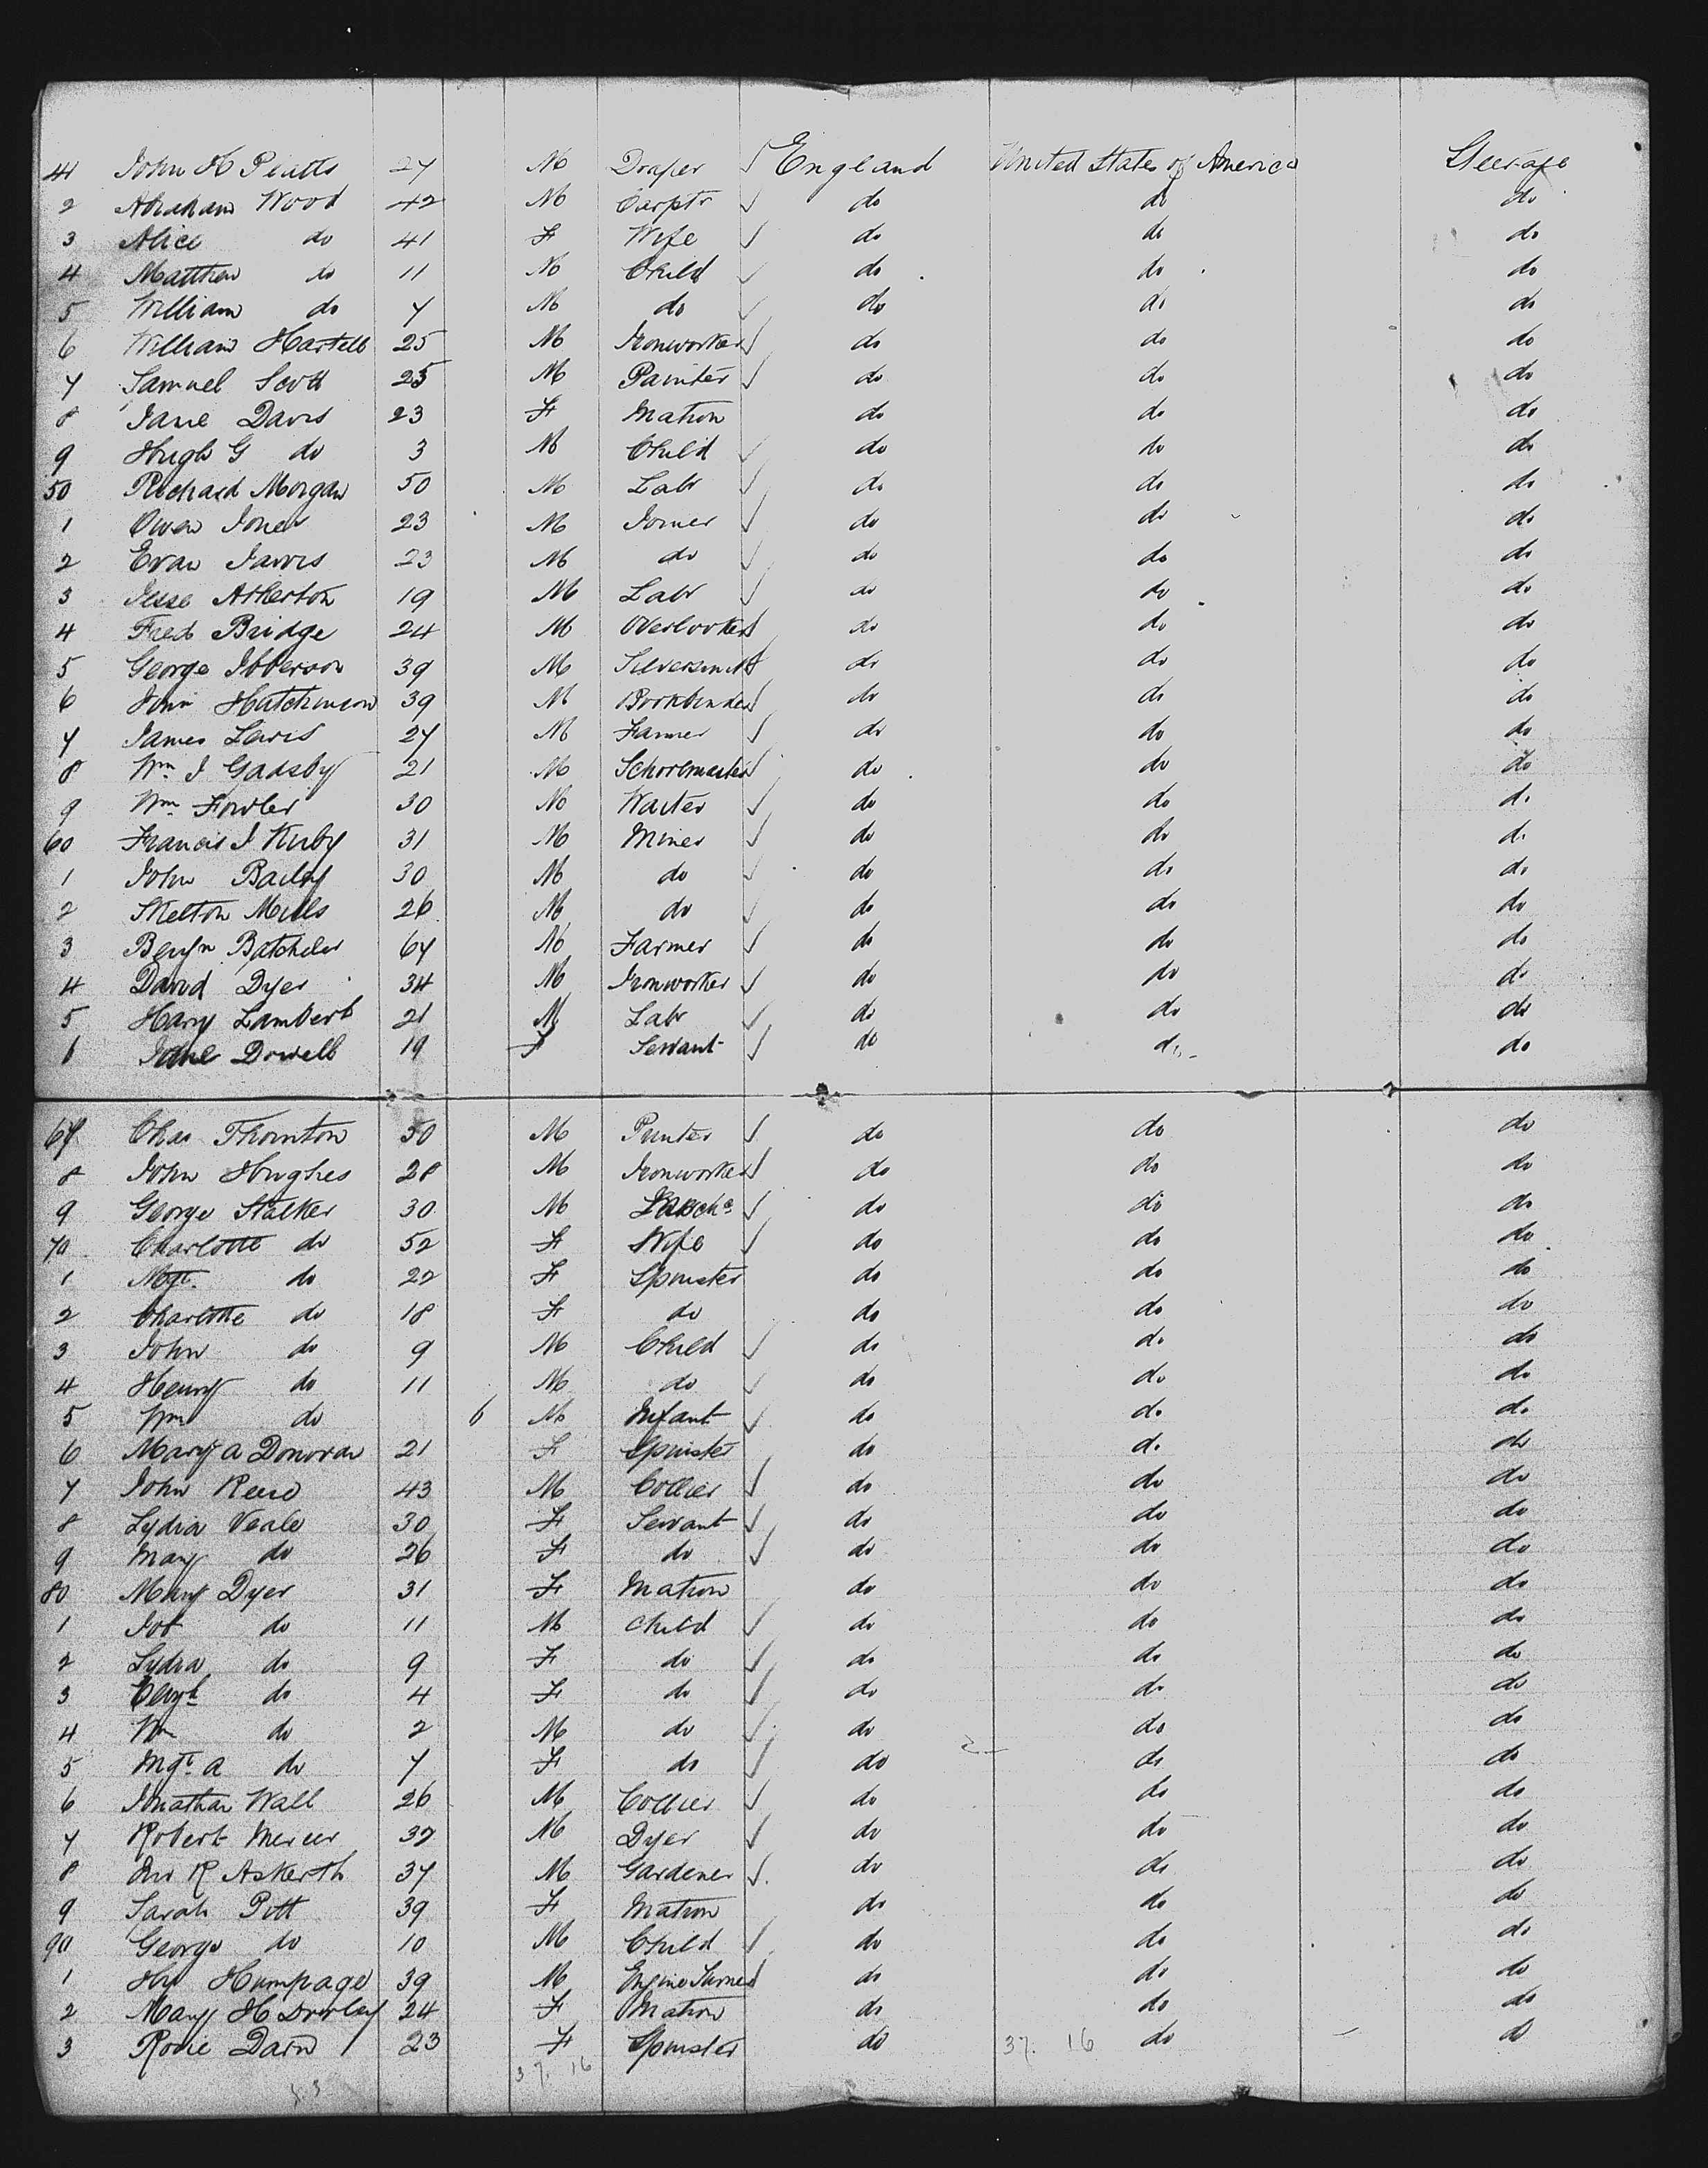 41 John H Piatts 27 M Draper ✓ England United States of America Steerage
2 Abraham Wood 42 M Carptr ✓ do do do
3 Alice do 41 F Wife ✓ do do do
4 Matthew do 11 M Child ✓ do do do
5 William do 7 M do ✓ do do do
6 William Hartell 25 M Ironworker ✓ do do do
7 Samuel Scott 25 M Painter ✓ do do do
8 Jane Davis 23 F Matron do do do
9 Hugh G do 3 M Child ✓ do do do
50 Richard Morgan 50 M Labr ✓ do do do
1 Owen Jones 23 M Joiner ✓ do do do
2 Evan Jarvis 23 M do ✓ do do do
3 Jesse Atherton 19 M Labr ✓ do do do
4 Fred Bridge 24 M Overlooker ✓ do do do
5 George Ibberson 39 M Silversmith ✓ do do do
6 John Hutchinson 39 M Bookbinder ✓ do do do
7 James Lewis 27 M Farmer ✓ do do do
8 Wm J Gadsby 21 M Schoolmaster ✓ do do do
9 Wm Fowler 30 M Waiter ✓ do do do
60 Francis J Kirby 31 M Miner ✓ do do do
1 John Bailey 30 M do ✓ do do do
2 Skelton Mills 26 M do ✓ do do do
3 Benjn Batcheler 67 M Farmer ✓ do do do
4 David Dyer 34 M Ironworker ✓ do do do
5 Harry Lambert 21 M Labr ✓ do do do
6 Jane Dowell 19 F Servant ✓ do do do
67 Chas Thornton 30 M Printer ✓ do do do
8 John Hughes 28 M Ironworker ✓ do do do
9 George Stalker 30 M ✓ do do do
70 Charlotte do 52 F Wife ✓ do do do
1 Mgt. do 22 F Spinster do do do
2 Charlotte do 18 F do do do do
3 John do 9 M Child ✓ do do do
4 Henry do 11 M do ✓ do do do
5 Wm do 6 M Infant ✓ do do do
6 Mary A Donovan 21 F Spinster do do do
7 John Reed 43 M Collier ✓ do do do
8 Lydia Veale 30 F Servant ✓ do do do
9 Mary do 26 F do ✓ do do do
80 Mary Dyer 31 F Matron do do do
1 Job do 11 M Child ✓ do do do
2 Lydia do 9 F do ✓ do do do
3 do 4 F do ✓ do do do
4 Wm do 2 M do ✓ do do do
5 Mgt. A do 7 F do ✓ do do do
6 Jonathan Wall 26 M Collier ✓ do do do
7 Robert Mercer 32 M Dyer ✓ do do do
8 Jno R Askerth 37 M Gardener ✓ do do do
9 Sarah Pitt 39 F Matron do do do
90 George do 10 M Child ✓ do do do
1 Hy Humpage 39 M Engine Turner ✓ do do do
2 Mary H 24 F Matron do do do
3 Rosie Darn 23 F Spinster do 37. 16 do do
37. 16